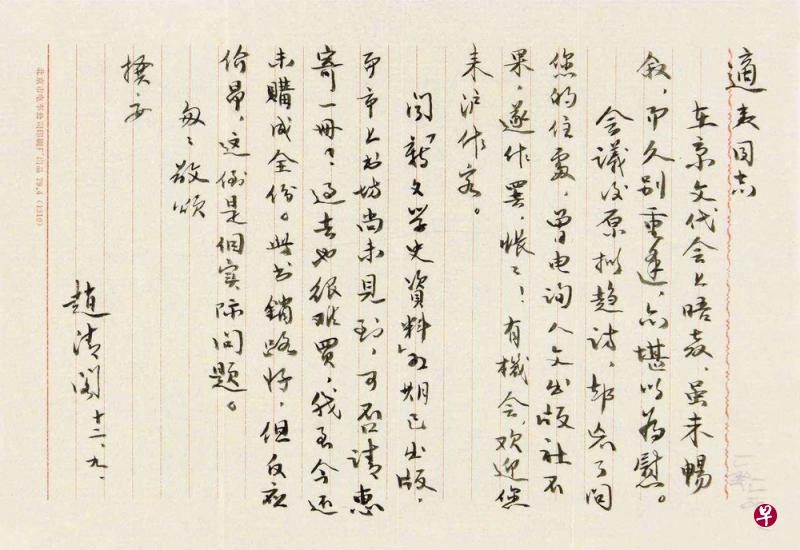 適夷同志
在京文代会上晤教，虽未暢
叙，而久别重逢，亦堪以为慰。
会議后原拟趋访，却忘了问
您的住處，曾电询人文出版社不
果，遂作罢，怅〻！有機会，欢迎您
来沪作客。
闻「新文学史資料」五期已出版，
而市上书坊尚未見到，可否請惠
寄一冊？过去也很难買，我至今还
未購成全份。此书銷路好，但反应
价昂，这倒是個实际问题。
匆〻敬颂
撰安
趙清阁 十二、九、
79.4 (1310)
早